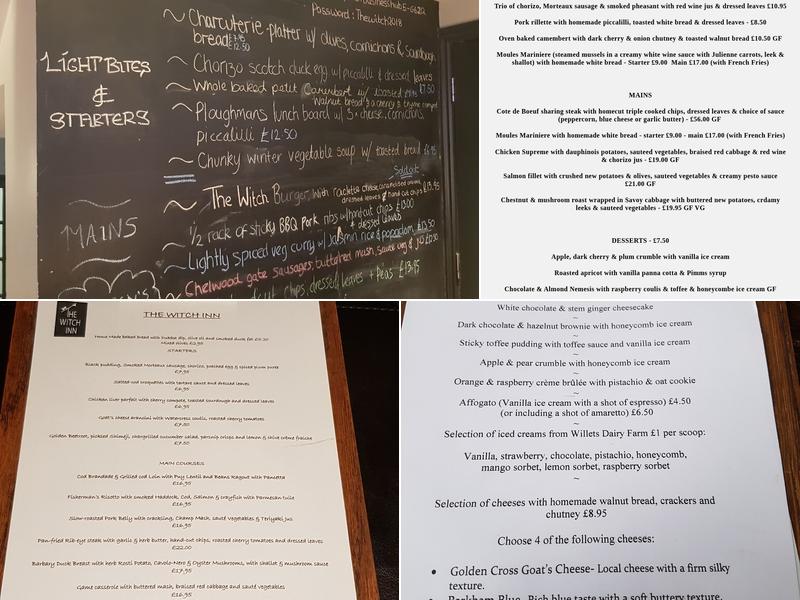 businesshub5-G62J
Password: Thewitch2018
LIGHT BITES
&
STARTERS
~ Charcuterie platter w/ olives, cornichons & sourdough
bread £12.50
~ Chorizo scotch duck egg w/ piccalilli & dressed leaves
~ Whole baked petit Camembert w/ toasted
walnut bread & a cherry & thyme compote
~ Ploughmans lunch board w/ 3 x cheese, cornichons,
piccalilli £12.50
~ Chunky winter vegetable soup w/ toasted bread
Sold out
MAINS
~ The Witch Burger, with raclette cheese, caramelised onions,
dressed leaves & hand cut chips £13.95
~ 1/2 rack of sticky BBQ Pork ribs w/ hand cut chips £13.00
+ dressed leaves
~ Lightly spiced veg curry w/ Jasmin rice & popadom
~ Chelwood gate sausages, buttered mash, sauté veg & jus
chips, dressed leaves + Peas £13.95
Trio of chorizo, Morteaux sausage & smoked pheasant with red wine jus & dressed leaves £10.95
Pork rillette with homemade piccalilli, toasted white bread & dressed leaves - £8.50
Oven baked camembert with dark cherry & onion chutney & toasted walnut bread £10.50 GF
Moules Mariniere (steamed mussels in a creamy white wine sauce with Julienne carrots, leek &
shallot) with homemade white bread - Starter £9.00 Main £17.00 (with French Fries)
MAINS
Cote de Boeuf sharing steak with homecut triple cooked chips, dressed leaves & choice of sauce
(peppercorn, blue cheese or garlic butter) - £56.00 GF
Moules Mariniere with homemade white bread - starter £9.00 - main £17.00 (with French Fries)
Chicken Supreme with dauphinois potatoes, sauteed vegetables, braised red cabbage & red wine
& chorizo jus - £19.00 GF
Salmon fillet with crushed new potatoes & olives, sauteed vegetables & creamy pesto sauce
£21.00 GF
Chestnut & mushroom roast wrapped in Savoy cabbage with buttered new potatoes, crdamy
leeks & sauteed vegetables - £19.95 GF VG
DESSERTS - £7.50
Apple, dark cherry & plum crumble with vanilla ice cream
Roasted apricot with vanilla panna cotta & Pimms syrup
Chocolate & Almond Nemesis with raspberry coulis & toffee & honeycombe ice cream GF
THE
WITCH
INN
THE WITCH INN
Home Made Baked Bread with Dukha dip, olive oil and smoked duck fat
Mixed olives
STARTERS
Black pudding, Smoked Morteaux sausage, chorizo, poached egg & spiced plum puree
£7.95
Salted cod croquettes with tartare sauce and dressed leaves
£6.95
Chicken liver parfait with cherry compote, toasted sourdough and dressed leaves
£6.95
Goat's cheese arancini with Watercress coulis, roasted cherry tomatoes
£7.50
Golden Beetroot, pickled Shimeji, chargrilled cucumber salad, parsnip crisps and lemon & chive crème fraiche
£7.50
MAIN COURSES
Cod Brandade & Grilled cod Loin with Puy Lentil and Beans Ragout with Pancetta
£16.95
Fisherman's Risotto with smoked Haddock, Cod, Salmon & crayfish with Parmesan tuile
£16.95
Slow-roasted Pork Belly with crackling, Champ Mash, sauté Vegetables & Teriyaki jus
£16.95
Pan-fried Rib-eye steak with garlic & herb butter, hand-cut chips, roasted cherry tomatoes and dressed leaves
£22.00
Barbary Duck Breast with herb Rosti Potato, Cavolo-Nero & Oyster Mushrooms, with shallot & mushroom sauce
£17.95
Game casserole with buttered mash, braised red cabbage and sauté vegetables
£16.95
White chocolate & stem ginger cheesecake
~
Dark chocolate & hazelnut brownie with honeycomb ice cream
~
Sticky toffee pudding with toffee sauce and vanilla ice cream
~
Apple & pear crumble with honeycomb ice cream
~
Orange & raspberry crème brûlée with pistachio & oat cookie
~
Affogato (Vanilla ice cream with a shot of espresso) £4.50
(or including a shot of amaretto) £6.50
~
Selection of iced creams from Willets Dairy Farm £1 per scoop:
Vanilla, strawberry, chocolate, pistachio, honeycomb,
mango sorbet, lemon sorbet, raspberry sorbet
~
Selection of cheeses with homemade walnut bread, crackers and
chutney £8.95
Choose 4 of the following cheeses:
• Golden Cross Goat's Cheese- Local cheese with a firm silky
texture.
Blue- Rich blue taste with a soft buttery texture.